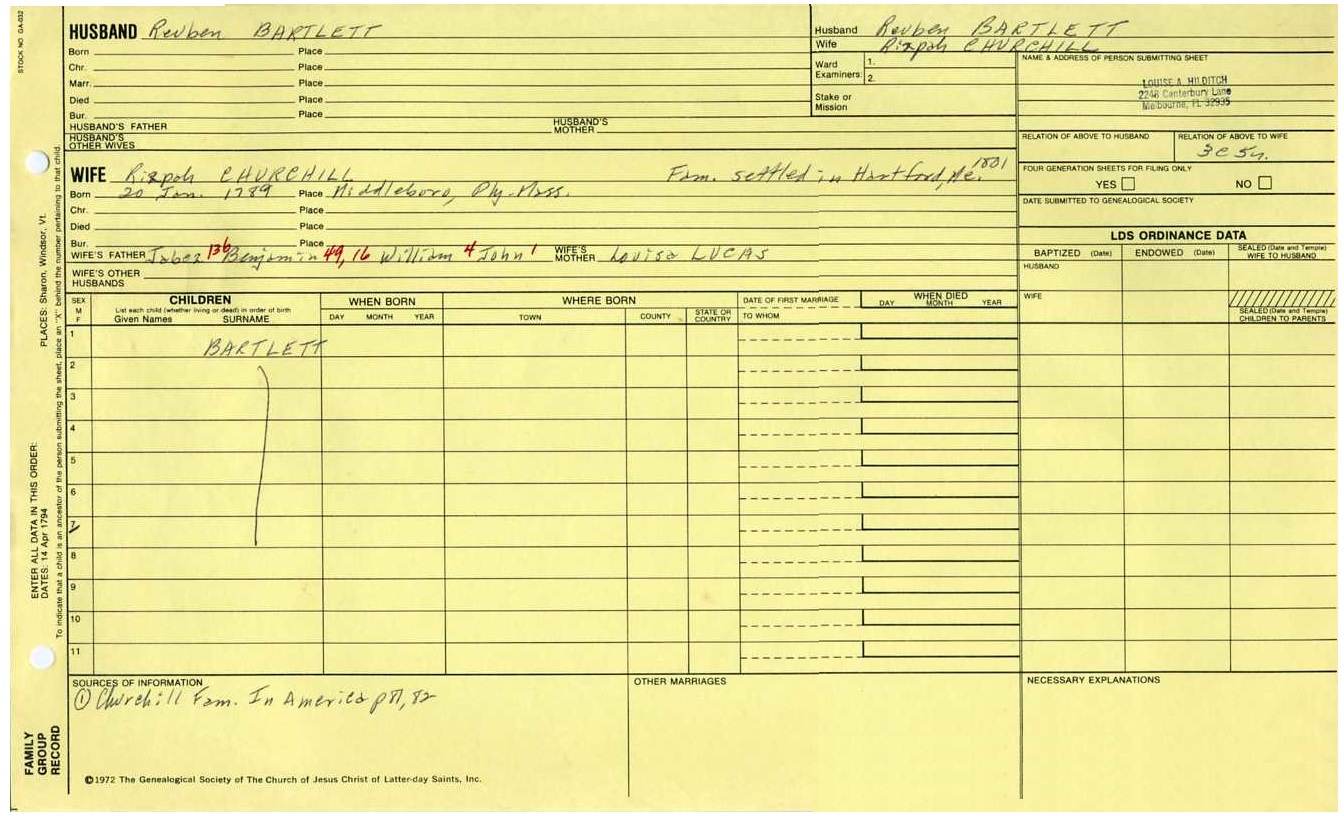 STOCK NO. GA-032
HUSBAND Reuben BARTLETT
Born Place
Chr. Place
Marr. Place
Died Place
Bur. Place
HUSBAND'S FATHER HUSBAND'S MOTHER
HUSBAND'S OTHER WIVES
Husband Reuben BARTLETT
Wife Rizpah CHURCHILL
Ward Examiners: 1.
2.
Stake or Mission
NAME & ADDRESS OF PERSON SUBMITTING SHEET
LOUISE A. HILDITCH
2248 Canterbury Lane
Melbourne, FL 32935
RELATION OF ABOVE TO HUSBAND RELATION OF ABOVE TO WIFE
3C5r.
FOUR GENERATION SHEETS FOR FILING ONLY
YES NO
DATE SUBMITTED TO GENEALOGICAL SOCIETY
WIFE Rizpah CHURCHILL Fam. settled in Hartford, Me. 1801
Born 20 Jan. 1789 Place Middleboro, Ply. Mass.
Chr. Place
Died Place
Bur. Place
WIFE'S FATHER Jabez 136 Benjamin 49, 16 William 4 John 1 WIFE'S MOTHER Louisa LUCAS
WIFE'S OTHER HUSBANDS
LDS ORDINANCE DATA
BAPTIZED (Date) ENDOWED (Date) SEALED (Date and Temple) WIFE TO HUSBAND
HUSBAND
WIFE
SEALED (Date and Temple) CHILDREN TO PARENTS
SEX M F
CHILDREN
List each child (whether living or dead) in order of birth
Given Names SURNAME
WHEN BORN
DAY MONTH YEAR
WHERE BORN
TOWN COUNTY STATE OR COUNTRY
DATE OF FIRST MARRIAGE
TO WHOM
WHEN DIED
DAY MONTH YEAR
1
BARTLETT
2
3
4
5
6
7
8
9
10
11
SOURCES OF INFORMATION
① Churchill Fam. In America p 81, 82
OTHER MARRIAGES
NECESSARY EXPLANATIONS
©1972 The Genealogical Society of The Church of Jesus Christ of Latter-day Saints, Inc.
FAMILY GROUP RECORD
ENTER ALL DATA IN THIS ORDER:
DATES: 14 Apr 1794
PLACES: Sharon, Windsor, Vt.
To indicate that a child is an ancestor of the person submitting the sheet, place an "X" behind the number pertaining to that child.